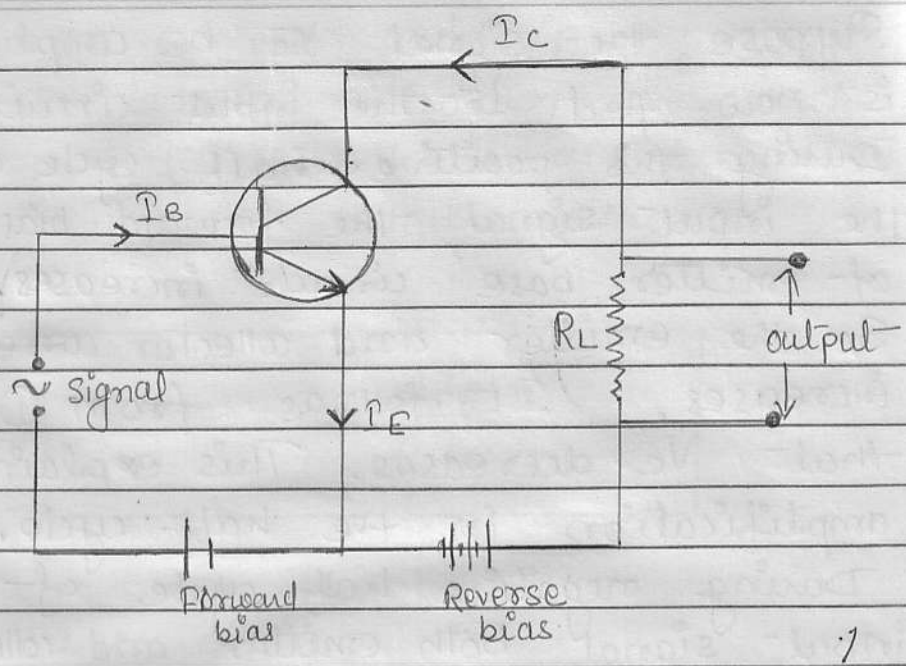 IC
IB
RL
output
~ signal
IE
Forward
bias
Reverse
bias